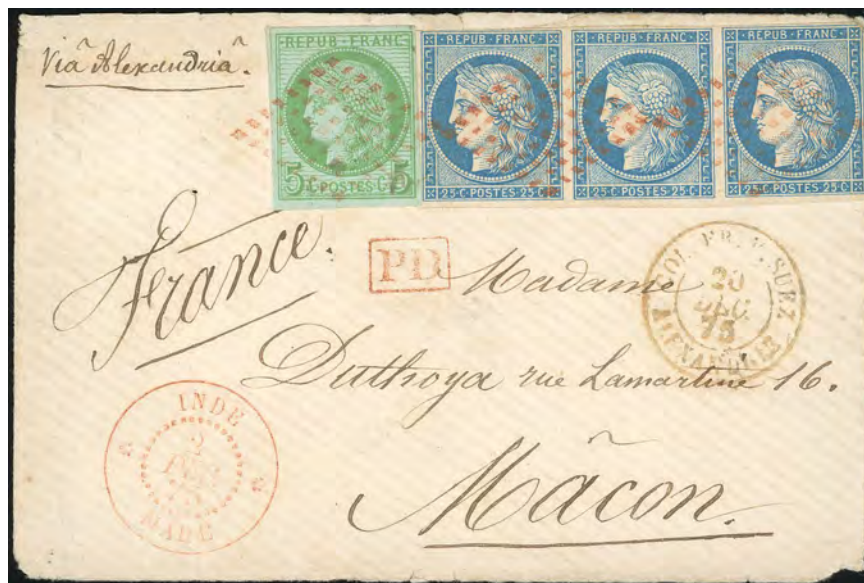 Via Alexandria.
REPUB·FRANC
5 C·POSTES·C 5
REPUB·FRANC
25·C·POSTES·25·C
REPUB·FRANC
25·C·POSTES·25·C
REPUB·FRANC
25·C·POSTES·25·C
France.
PD
SUEZ
20
DEC.
75
Madame
Duthoya rue Lamartine 16.
INDE
2
Mâcon.